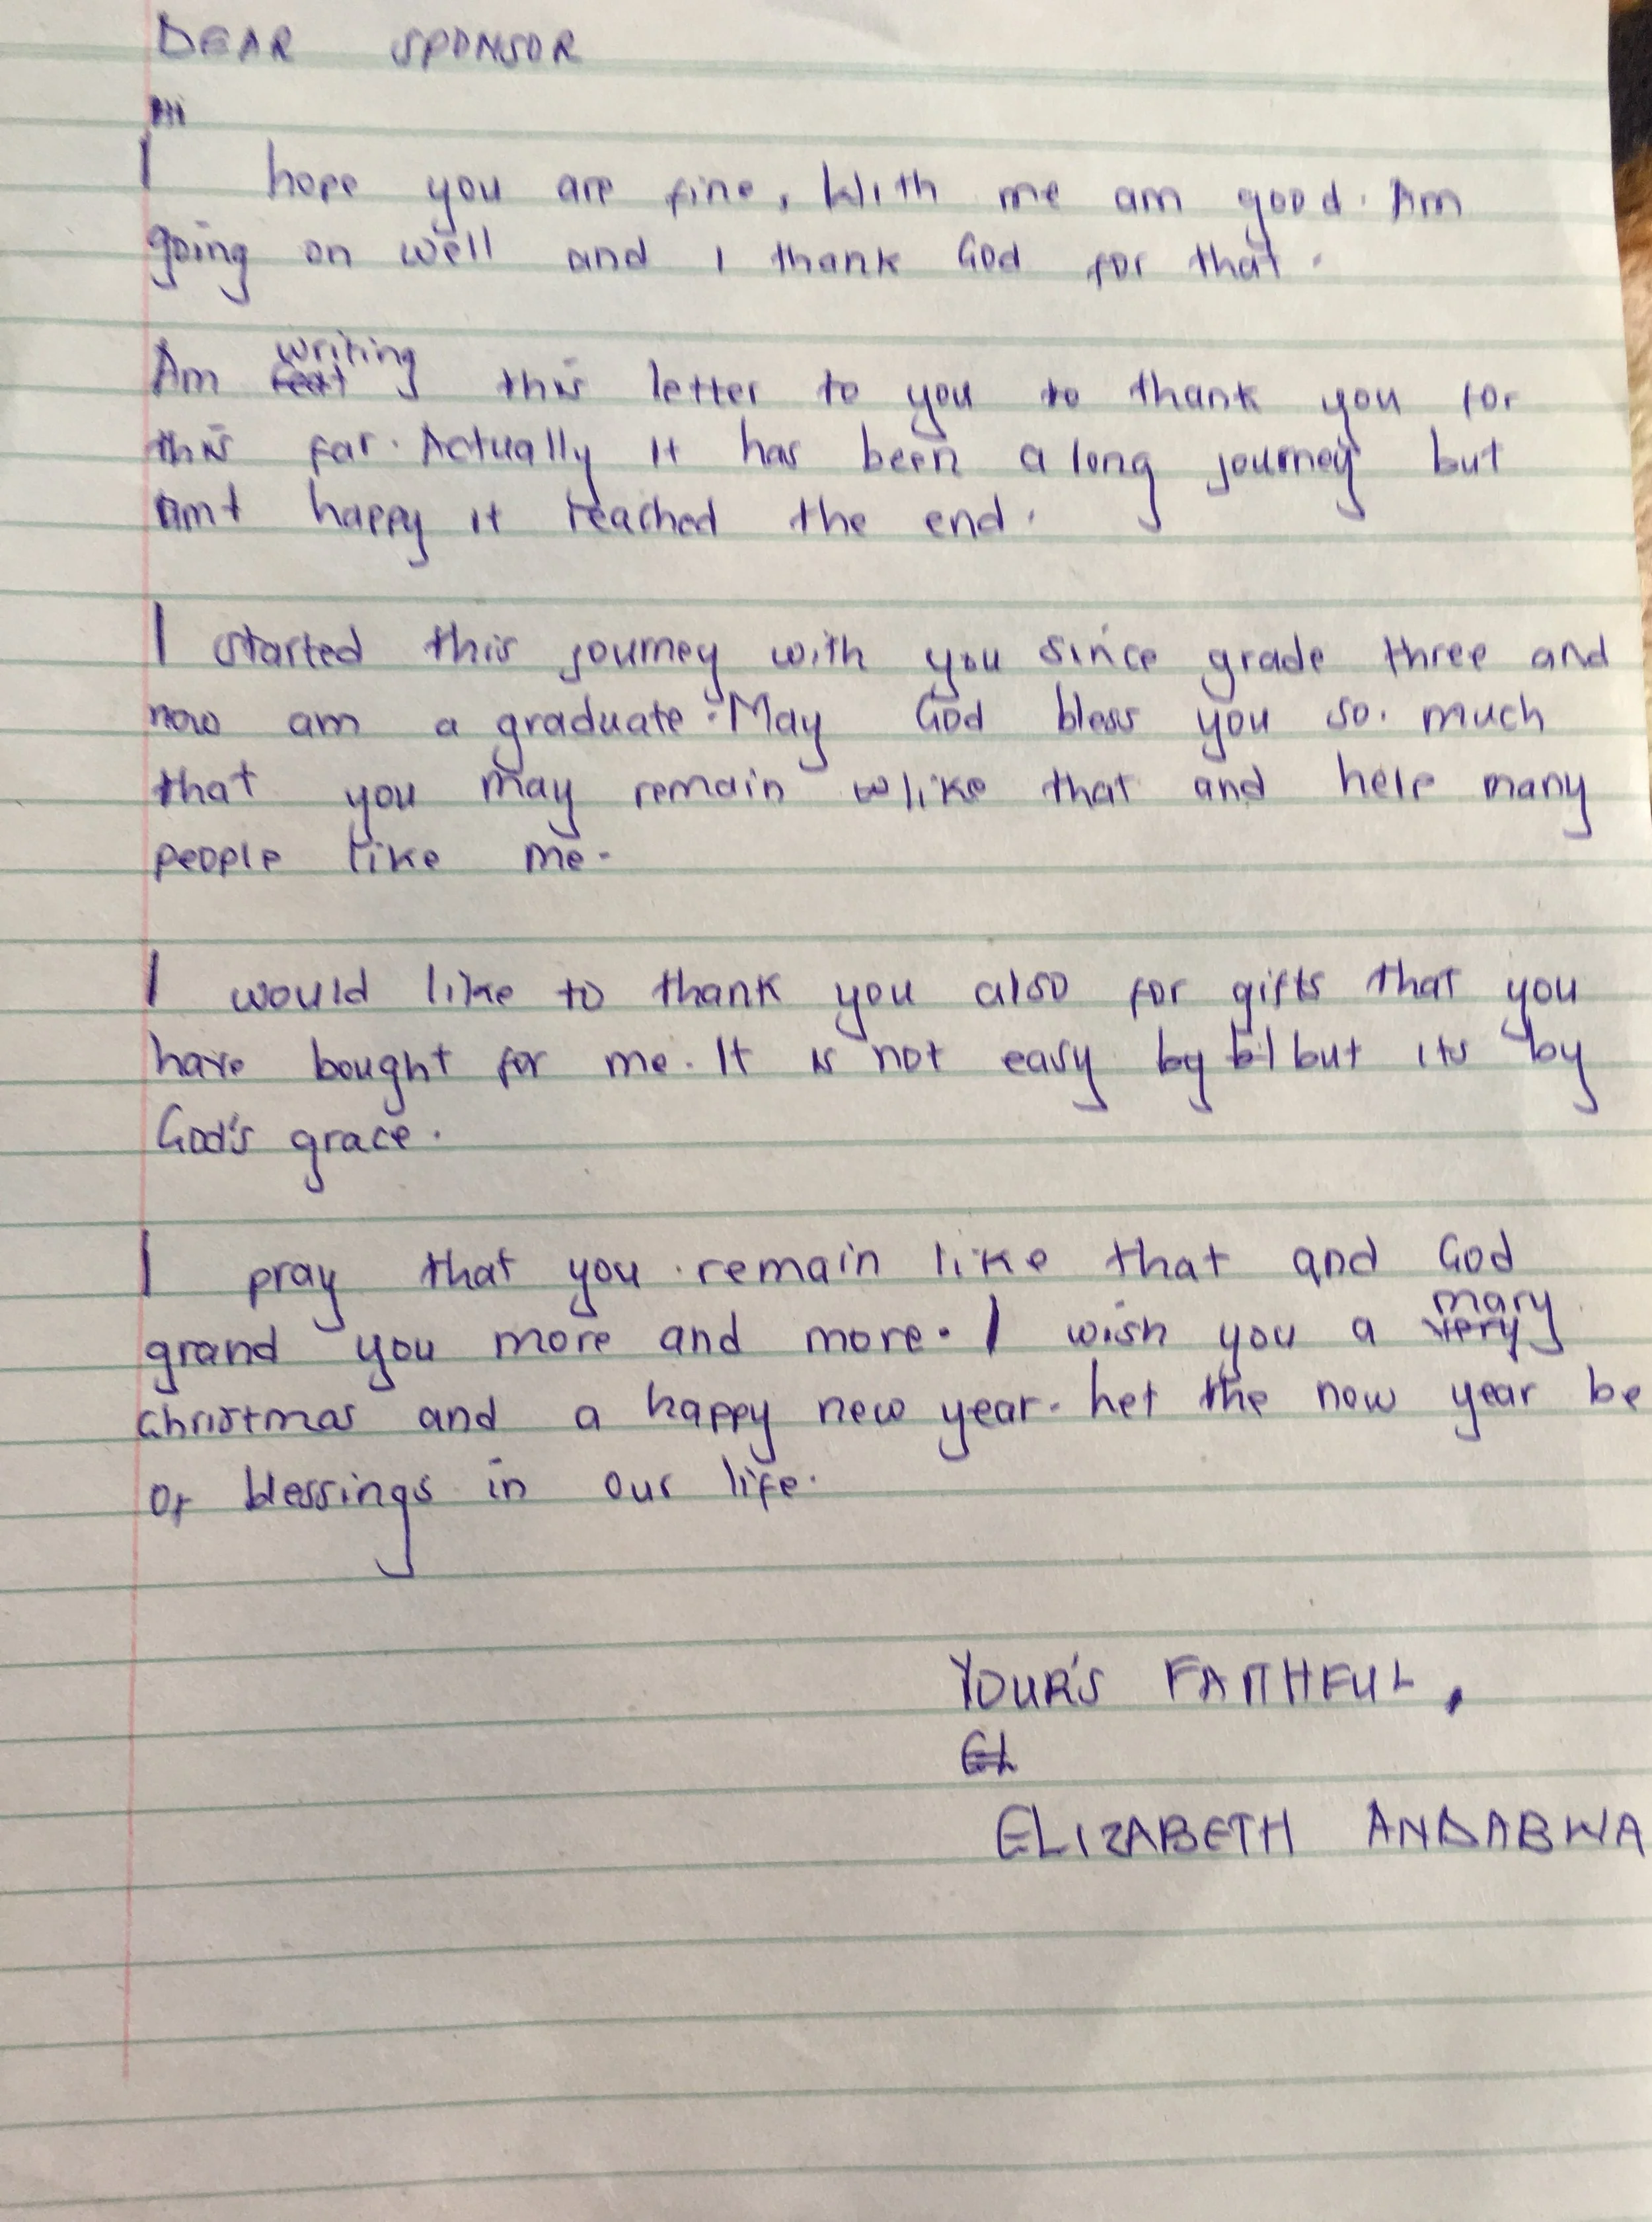 DEAR SPONSOR
Hi
I hope you are fine, With me am good. Am
going on well and I thank God for that.
writing
Am this letter to you to thank you for
this far. Actually it has been a long journey but
amt happy it reached the end.
I started this journey with you since grade three and
now am a graduate. May God bless you so. much
that you may remain wlike that and help many
people like me.
I would like to thank you also for gifts that you
have bought for me. It is not easy by but its by
God's grace.
I pray that you remain like that and God
mary
grand you more and more. I wish you a very
christmas and a happy new year. Let the new year be
of blessings in our life.
YOUR'S FAITHFUL,
EL
ELIZABETH ANDABWA